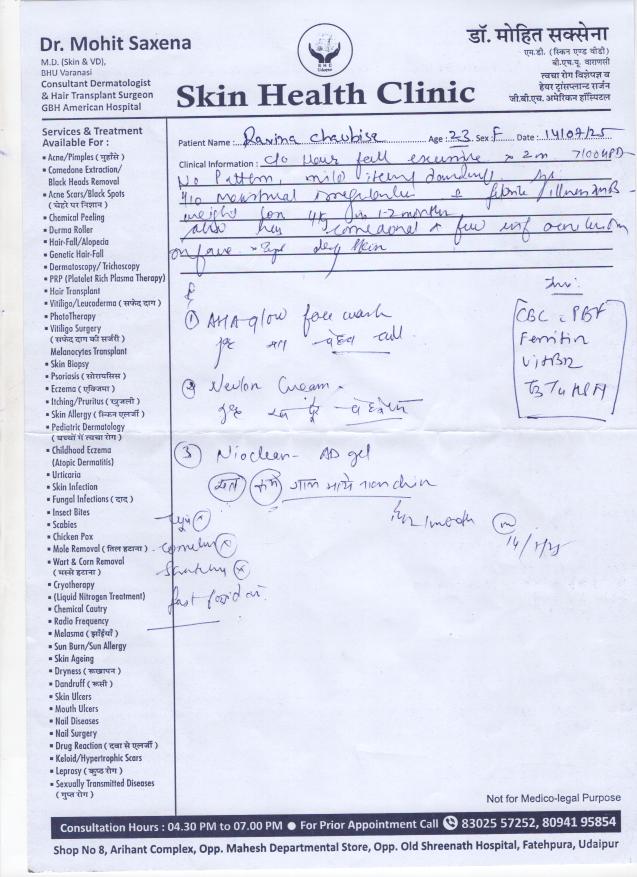 Dr. Mohit Saxena
M.D. (Skin & VD),
BHU Varanasi
Consultant Dermatologist
& Hair Transplant Surgeon
GBH American Hospital
S H C
Udaipur
Skin Health Clinic
डॉ. मोहित सक्सेना
एम.डी. (स्किन एण्ड वीडी)
बी.एच.यू. वाराणसी
त्वचा रोग विशेषज्ञ व
हेयर ट्रांसप्लान्ट सर्जन
जी.बी.एच. अमेरिकन हॉस्पिटल
Services & Treatment
Available For :
• Acne/Pimples ( मुहाँसे )
• Comedone Extraction/
Black Heads Removal
• Acne Scars/Black Spots
( चेहरे पर निशान )
• Chemical Peeling
• Derma Roller
• Hair-Fall/Alopecia
• Genetic Hair-Fall
• Dermatoscopy/ Trichoscopy
• PRP (Platelet Rich Plasma Therapy)
• Hair Transplant
• Vitiligo/Leucoderma ( सफेद दाग )
• PhotoTherapy
• Vitiligo Surgery
( सफेद दाग की सर्जरी )
Melanocytes Transplant
• Skin Biopsy
• Psoriasis ( सोरायसिस )
• Eczema ( एक्जिमा )
• Itching/Pruritus ( खुजली )
• Skin Allergy ( स्किन एलर्जी )
• Pediatric Dermatology
( बच्चों में त्वचा रोग )
• Childhood Eczema
(Atopic Dermatitis)
• Urticaria
• Skin Infection
• Fungal Infections ( दाद )
• Insect Bites
• Scabies
• Chicken Pox
• Mole Removal ( तिल हटाना )
• Wart & Corn Removal
( मस्से हटाना )
• Cryotherapy
• (Liquid Nitrogen Treatment)
• Chemical Cautry
• Radio Frequency
• Melasma ( झाँईयाँ )
• Sun Burn/Sun Allergy
• Skin Ageing
• Dryness ( रूखापन )
• Dandruff ( रूसी )
• Skin Ulcers
• Mouth Ulcers
• Nail Diseases
• Nail Surgery
• Drug Reaction ( दवा से एलर्जी )
• Keloid/Hypertrophic Scars
• Leprosy ( कुष्ठ रोग )
• Sexually Transmitted Diseases
( गुप्त रोग )
Patient Name : Ravina Chaubisa Age : 23 Sex F Date : 14/07/25
Clinical Information : C/o Hair fall excessive x 2m
No Pattern, mild itching dandruff,
menstrual irregularities febrile / illness
weight loss 4 kg in 1-2 months
also has comedonal few
on face dry skin
① AHA-glow face wash
② Cream
③ Nioclean - AD gel
chin
Inv:
CBC PBF
Ferritin
Vit B12
T3 T4 TSH
14/7/25
fast food
Not for Medico-legal Purpose
Consultation Hours : 04.30 PM to 07.00 PM ● For Prior Appointment Call 83025 57252, 80941 95854
Shop No 8, Arihant Complex, Opp. Mahesh Departmental Store, Opp. Old Shreenath Hospital, Fatehpura, Udaipur